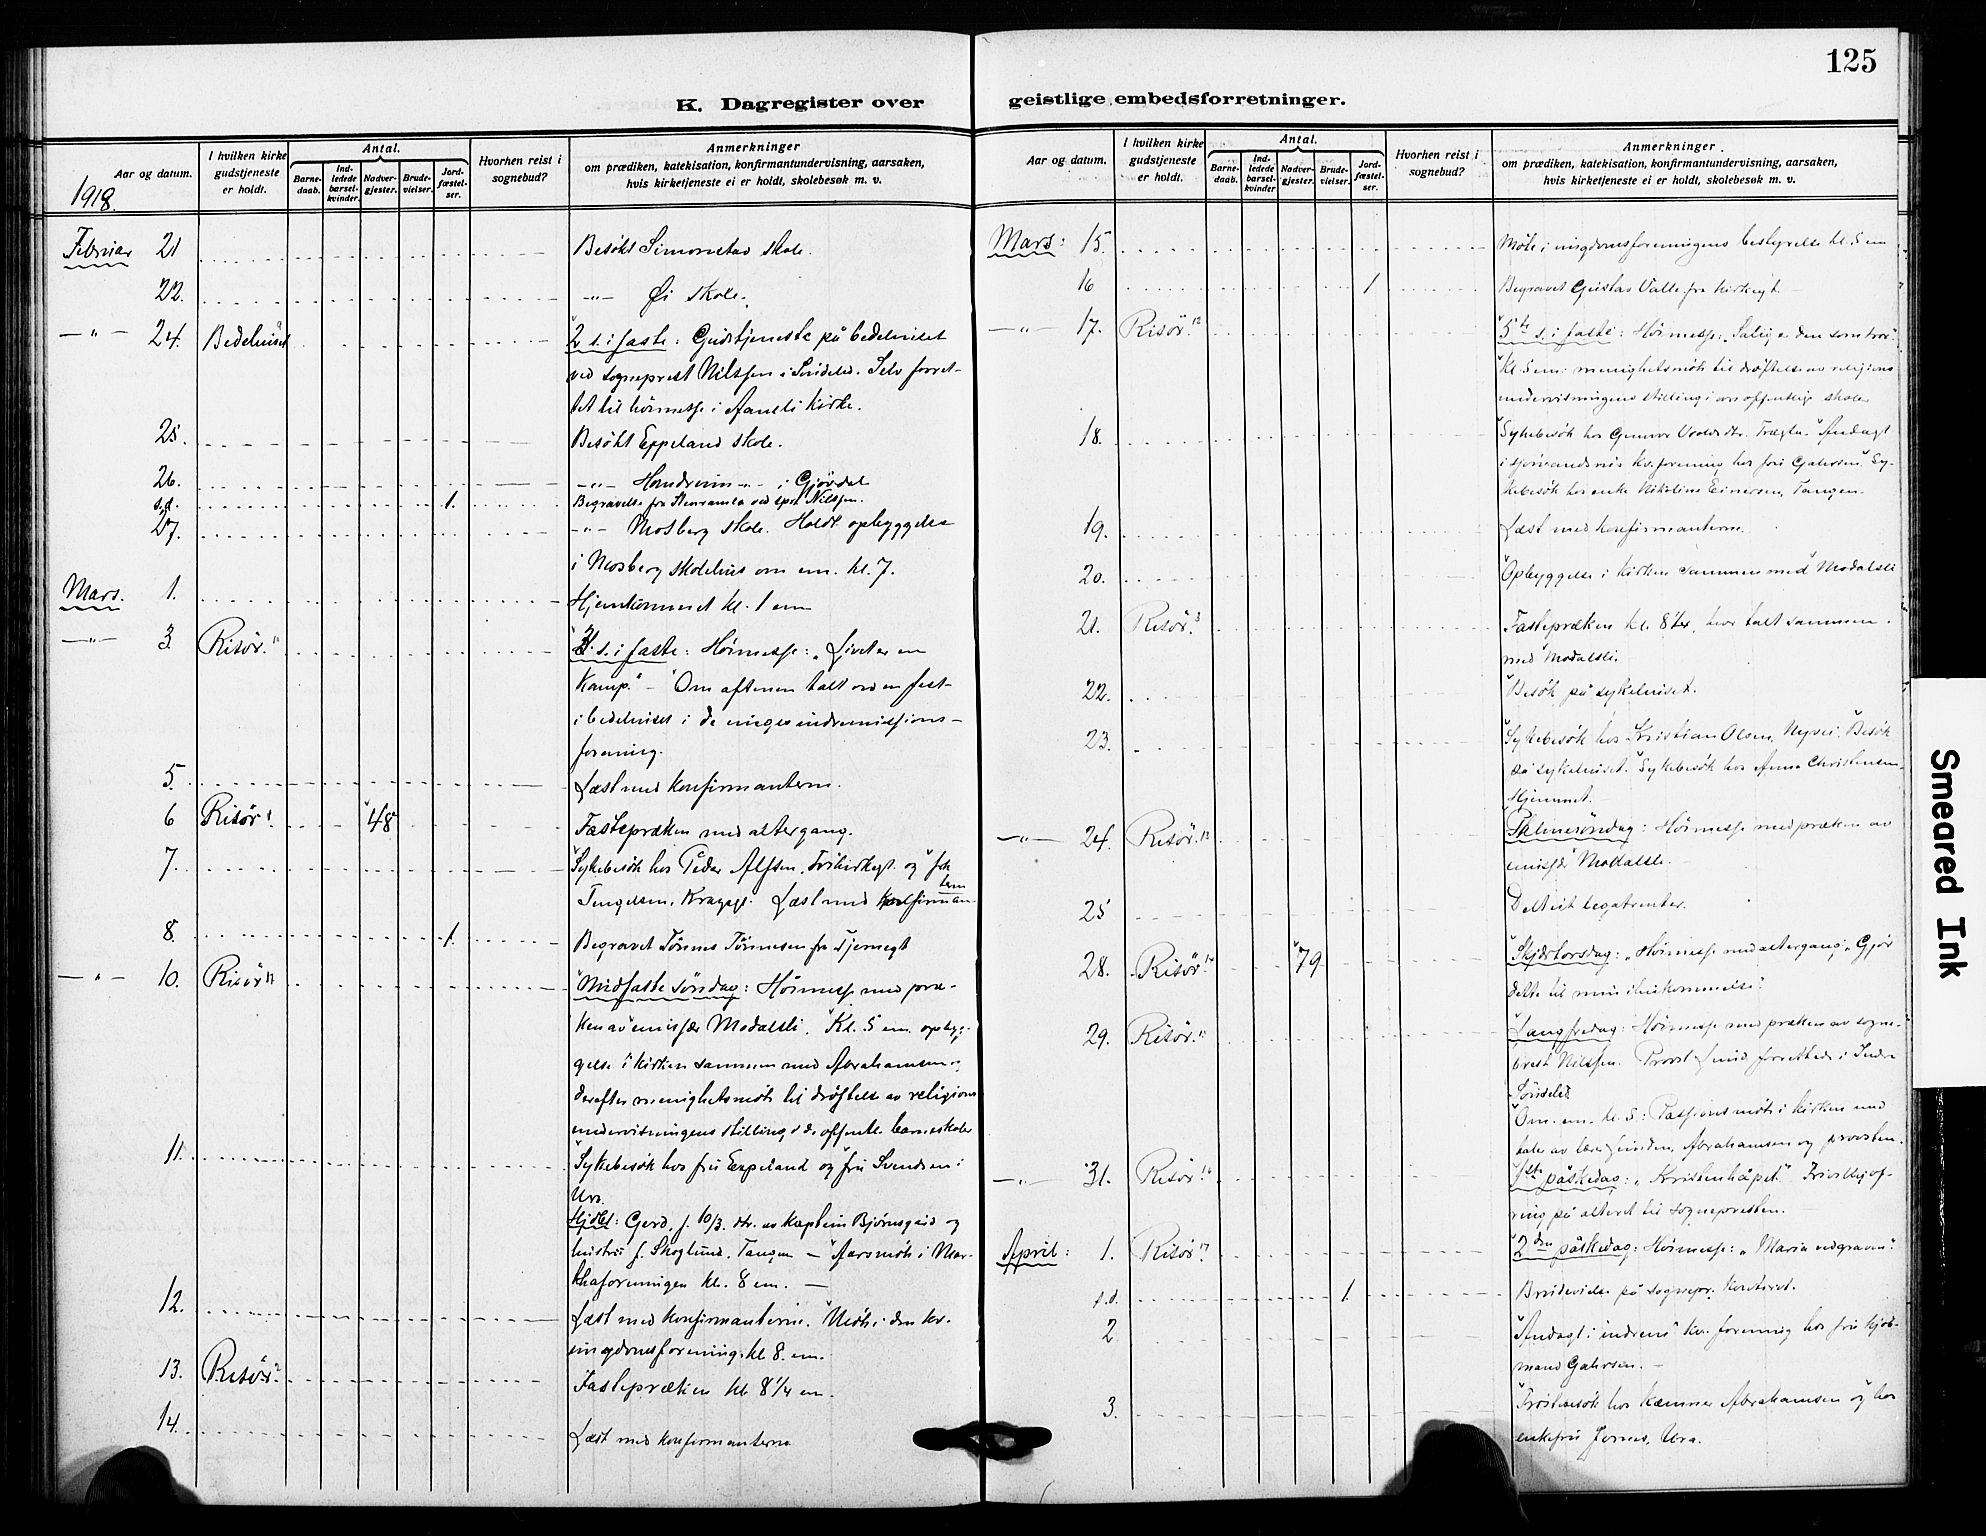 125
K. Dagregister over geistlige embedsforretninger.
Aar og datum.
I hvilken kirke gudstjeneste er holdt.
Antal.
Barne-daab.
Ind-ledede barsel-kvinder.
Nadver-gjester.
Brude-vielser.
Jord-fæstel-ser.
Hvorhen reist i sognebud?
Anmerkninger
om prædiken, katekisation, konfirmantundervisning, aarsaken,
hvis kirketjeneste ei er holdt, skolebesøk m. v.
1918.
Februar 21 Besøkt Simonstad skole.
22. -"- Øi skole.
-"- 24. Bedehuset 2 s. i faste: Gudstjeneste på bedehuset
ved sogneprest Nilssen i Søndeled. Selv forret-
tet til høimesse i Aamli kirke.
25. Besøkt Eppeland skole.
26. -"- -"- i Gjøvdal
s.d. 1. Begravelse fra ved spr. Nilssen.
27. -"- Mosberg skole. Holdt opbyggelse
i Mosberg skolehus om em. kl. 7.
Mars. 1. Hjemkommet kl. 1 em
-"- 3. Risør. 3. s. i faste: Høimesse: „Livet er en
Kamp." - Om aftenen talt ved en fest
i bedehuset i de unges indremissions-
forening.
5. Læst med konfirmanterne.
6 Risør 48 Fastepræken med altergang.
7. Sykebesøk hos Peder Alfsen, og frk
Tengelsen, Kragsgt. Læst med konfirman-
tern
8. 1. Begravet Tønnes Tønnesen fra Tjennegt
-"- 10. Risør Midfastesøndag: Høimesse med præ-
ken av emissær Modalsli. Kl. 5 em. opbyg-
gelse i kirken sammen med Abrahamsen og
derefter menighetsmøte til drøftelse av religions
undervisningens stilling i de offentl. barneskoler
11. Sykebesøk hos fru Eppeland og fru Svendsen i
Ura.
Hjdbt: Gerd, f. 10/3. dtr. av Kaptein Bjørnsgård og
hustru f. Skoglund, Tangen - Aarsmøte i Mar-
thaforeningen kl. 8 em. -
12. Læst med konfirmanterne. Møte i den kr.
ungdomsforening kl. 8. em.
13. Risør. Fastepræken kl 8 1/4 em.
14. Læst med konfirmanterne
Aar og datum.
I hvilken kirke gudstjeneste er holdt.
Antal.
Barne-daab.
Ind-ledede barsel-kvinder
Nadver-gjester.
Brude-vielser.
Jord-fæstel-ser.
Hvorhen reist i sognebud?
Anmerkninger.
om prædiken, katekisation, konfirmantundervisning, aarsaken,
hvis kirketjeneste ei er holdt, skolebesøk m. v.
Mars: 15. Møte i ungdomsforeningens bestyrelse kl. 5 em
16 1 Begravet Gustav Valle fra Kirkegt. -
-"- 17. Risør. 12 5te s. i faste: Høimesse: „Salig er den som tror."
Kl. 5 em: menighetsmøte til drøftelse av religions
undervisningens stilling i vore offentlige skoler
18. Sykebesøk hos Gunvor Andagt
i kv.forening hos fru Gahrsen. Sy-
kebesøk hos enke Nikoline Einersen, Tangen.
19. Læst med konfirmanterne.
20. Opbyggelse i kirken sammen med Modalsli
21. Risør. 3 Fastepræken kl. 8 1/4, hvor talt sammen
med Modalsli.
22. Besøk på sykehuset.
23. Sykebesøk hos Kristian Olsen, Nyvei. Besøk
på sykehuset. Sykebesøk hos Anna Christensen,
Hjemmet. -
-"- 24. Risør. Palmesøndag: Høimesse med præken av
emissær Modalsli. -
25 Delt ut legatrenter.
28. Risør. 79 Skjærtorsdag: Høimesse med altergang: „Gjør
dette til min ihukommelse."
29. Risør. Langfredag: Høimesse med præken av sogne-
prest Nilssen. Provst forrettede i Indre
Søndeled
Om em. kl. 5: Passionsmøte i kirken med
taler av Abrahamsen og provsten.
-"- 31. Risør. 16 1ste påskedag: „Kristenhåpet." Frivillig of-
ring på alteret til sognepresten. -
April: 1. Risør 17. 2den påskedag: Høimesse: „Maria ved graven."
s.d. 1. Brudevielse på sognepr. kontoret.
2 Andagt i indrem. kv. forening hos fru kjøb-
mand Gahrsen. -
3. hos kæmner Abrahamsen og hos
enkefru Ura.
Smeared Ink